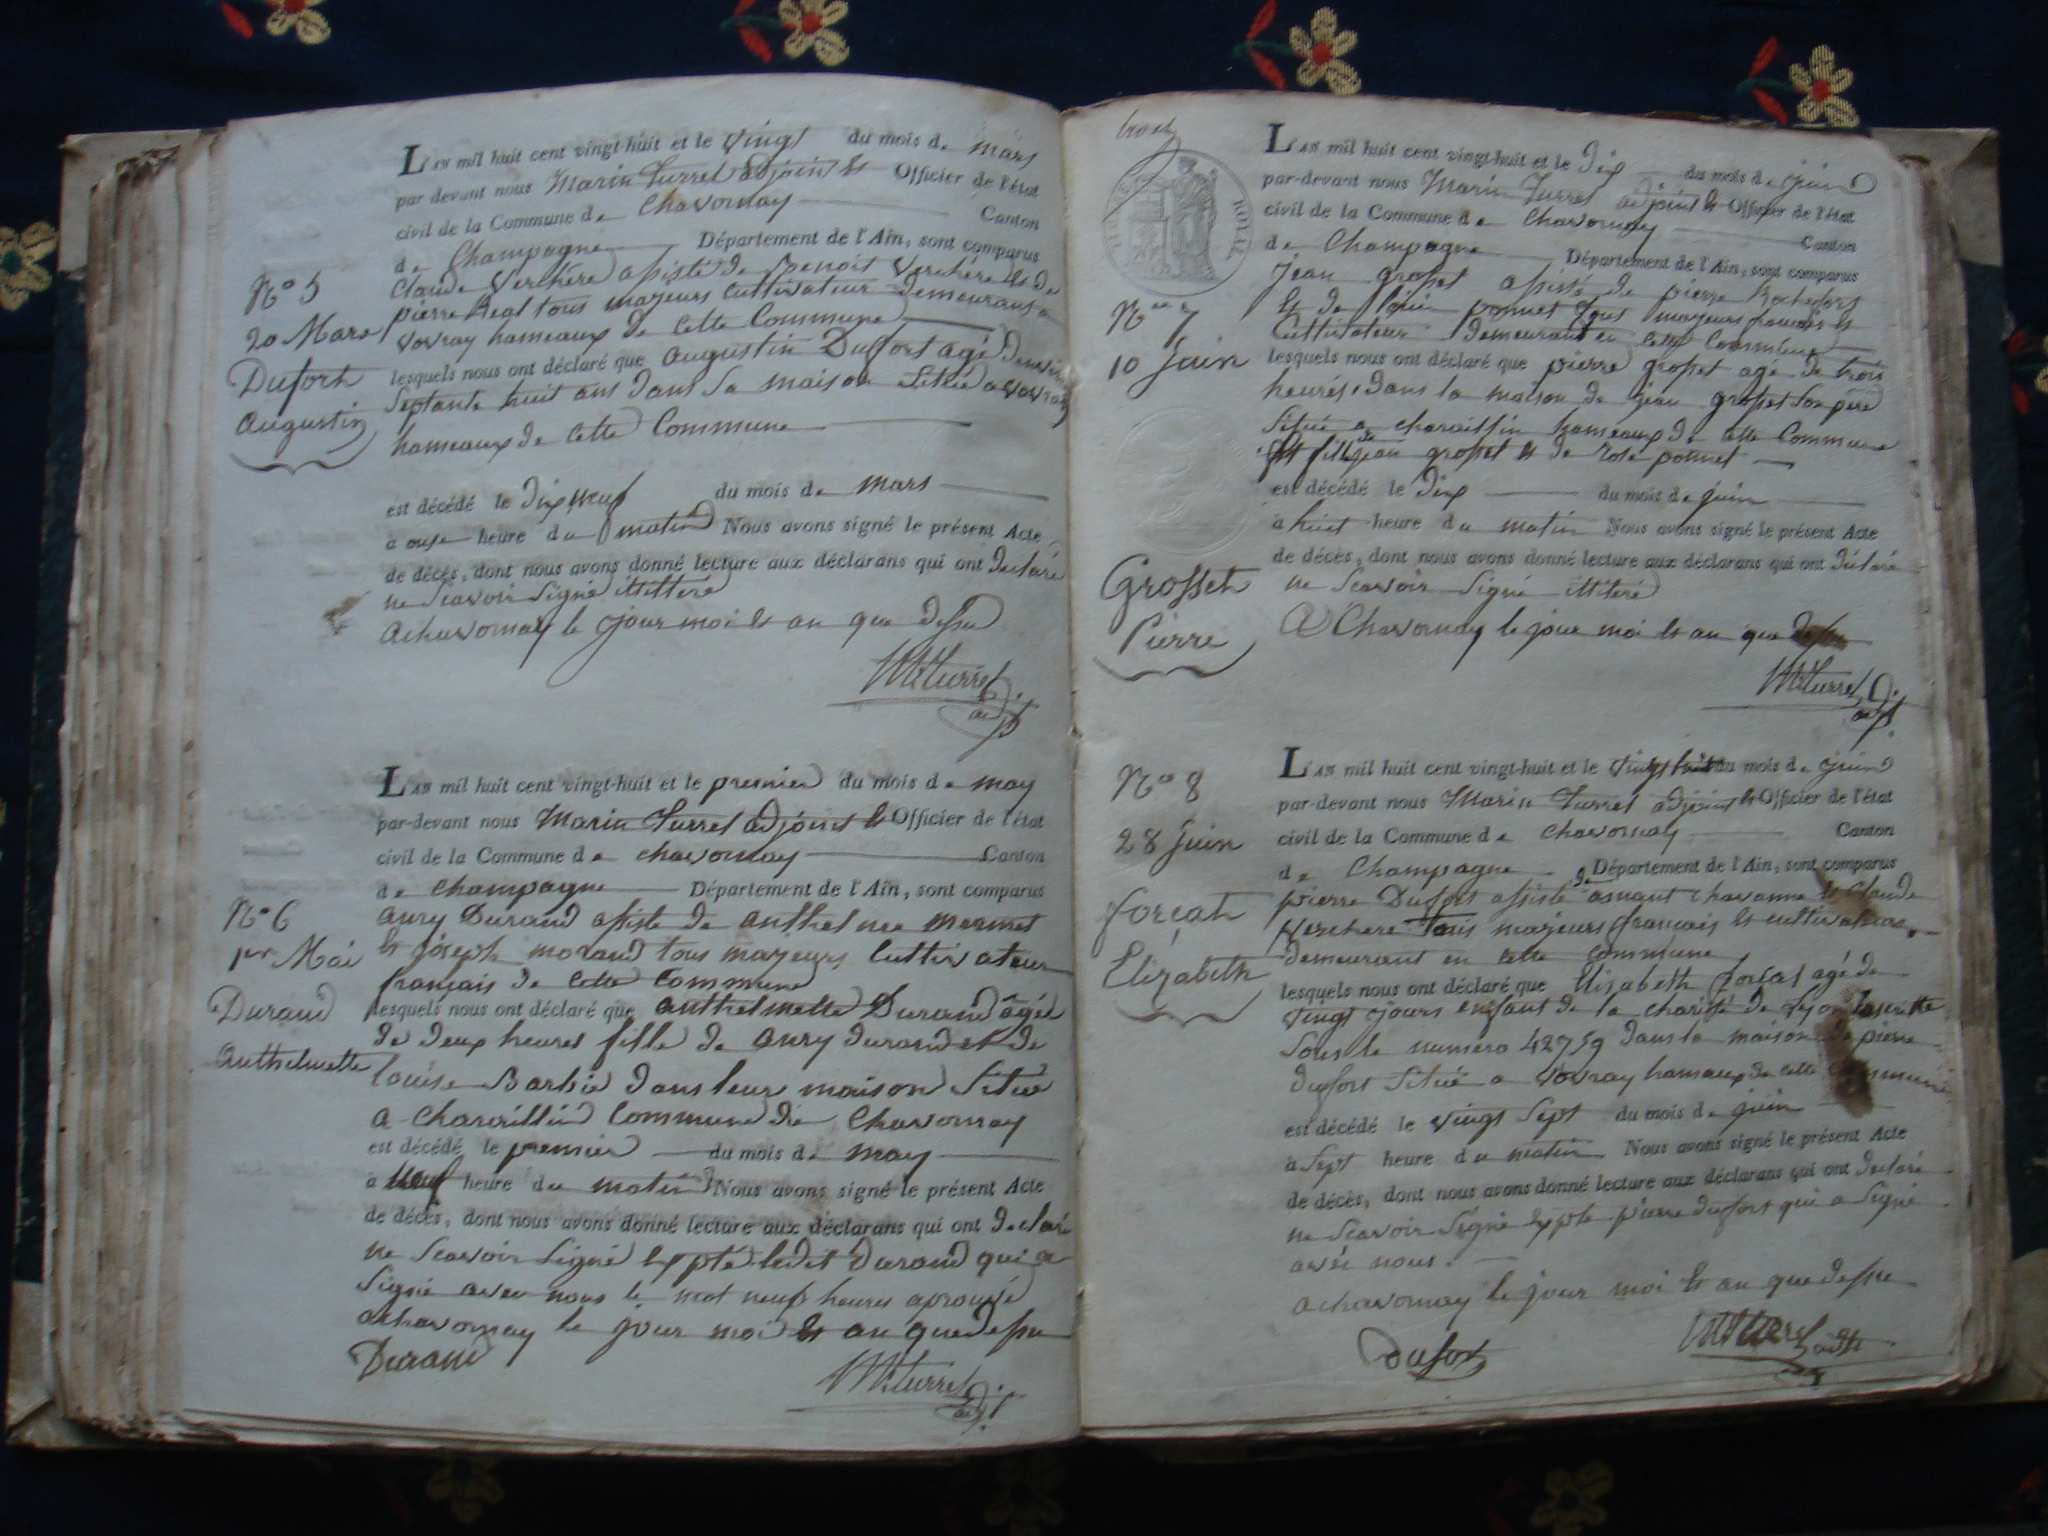 L'AN mil huit cent vingt-huit et le vingt du mois de mars
par devant nous Marin Turrel adjoint et Officier de l'état
civil de la Commune de Chavornay Canton
de Champagne Département de l'Ain, sont comparus
Claude Verchere assisté de Benoit Verchere et de
pierre Real tous majeurs cultivateur demeurant a
vovray hameaux de cette Commune
lesquels nous ont déclaré que augustin Dufort agé denviron
septante huit ans dans sa maison située a vovray
hameaux de cette Commune
est décédé le dix neuf du mois de mars
a onse heure du matin Nous avons signé le présent Acte
de décès, dont nous avons donné lecture aux déclarans qui ont declaré
ne scavoir signé ittittéré
a chavornay le jour moi et an que dessu
M. Turrel adj.
N° 5
20 Mars
Dufort
Augustin
L'AN mil huit cent vingt-huit et le premier du mois de may
par-devant nous Marin Turrel adjoint et Officier de l'état
civil de la Commune de chavornay Canton
de champagne Département de l'Ain, sont comparus
aury Durand assiste de anthelmee mermet
et joseph morand tous mayeurs cultivateur
français de cette commune
lesquels nous ont déclaré que anthelmette Durand âgée
de deux heures fille de aury durand et de
louise Barbié dans leur maison situé
a charaillin Commune de Chavornay
est décédé le premier du mois de may
à neuf heure du matin Nous avons signé le présent Acte
de décès, dont nous avons donné lecture aux déclarans qui ont declaré
ne scavoir signé expté ledit durand qui a
signé avec nous le mot neuf heures aprouvé
a chavornay le jour moi et an que dessu
Durand
M. Turrel adj.
N° 6
1er Mai
Durand
Anthelmette
trois
ROYAL
L'AN mil huit cent vingt-huit et le dix du mois de juin
par-devant nous Marin Turrel adjoint et Officier de l'état
civil de la Commune de Chavornay Canton
de Champagne Département de l'Ain, sont comparus
jean grosset assisté de pierre Rochefort
et de louis ponnet tous majeurs français et
Cultivateur demeurant en cette Commune
lesquels nous ont déclaré que pierre grosset agé de trois
heures dans la maison de jean grosset son père
Située a charaillin hameaux de cette Commune
fils de jean grosset et de rose ponnet
est décédé le dix du mois de juin
à huit heure du matin Nous avons signé le présent Acte
de décès, dont nous avons donné lecture aux déclarans qui ont déclaré
ne scavoir signé ittiteré
A Chavornay le jour moi et an que dessu
M. Turrel adj.
N° 7
10 Juin
Grosset
Pierre
L'AN mil huit cent vingt-huit et le vingt huit du mois de juin
par-devant nous Marin Turrel adjoint et Officier de l'état
civil de la Commune de chavornay Canton
de Champagne Département de l'Ain, sont comparus
pierre Dufort assisté de amant chavanne et Claude
verchere tous majeurs français et cultivateurs
demeurant en cette commune
lesquels nous ont déclaré que Elisabeth forcat agé de
vingt jours enfant de la charité de lyon inscritte
sous le numero 42759 dans la maison de pierre
dufort situé a vovray hameaux de cette Commune
est décédé le vingt sept du mois de juin
à sept heure du matin Nous avons signé le présent Acte
de décès, dont nous avons donné lecture aux déclarans qui ont declaré
ne scavoir signé expte pierre dufort qui a signé
avéc nous.
a chavornay le jour moi et an que dessu
dufort
M. Turrel adj
N° 8
28 Juin
forçat
Elizabeth